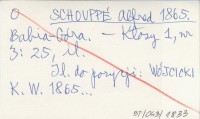 O SCHOUPPÉ Alfred 1865.
Babia-Góra. – Kłosy 1, nr
3: 25, il.
Il. do pozycji: WÓJCICKI
K. W. 1865...